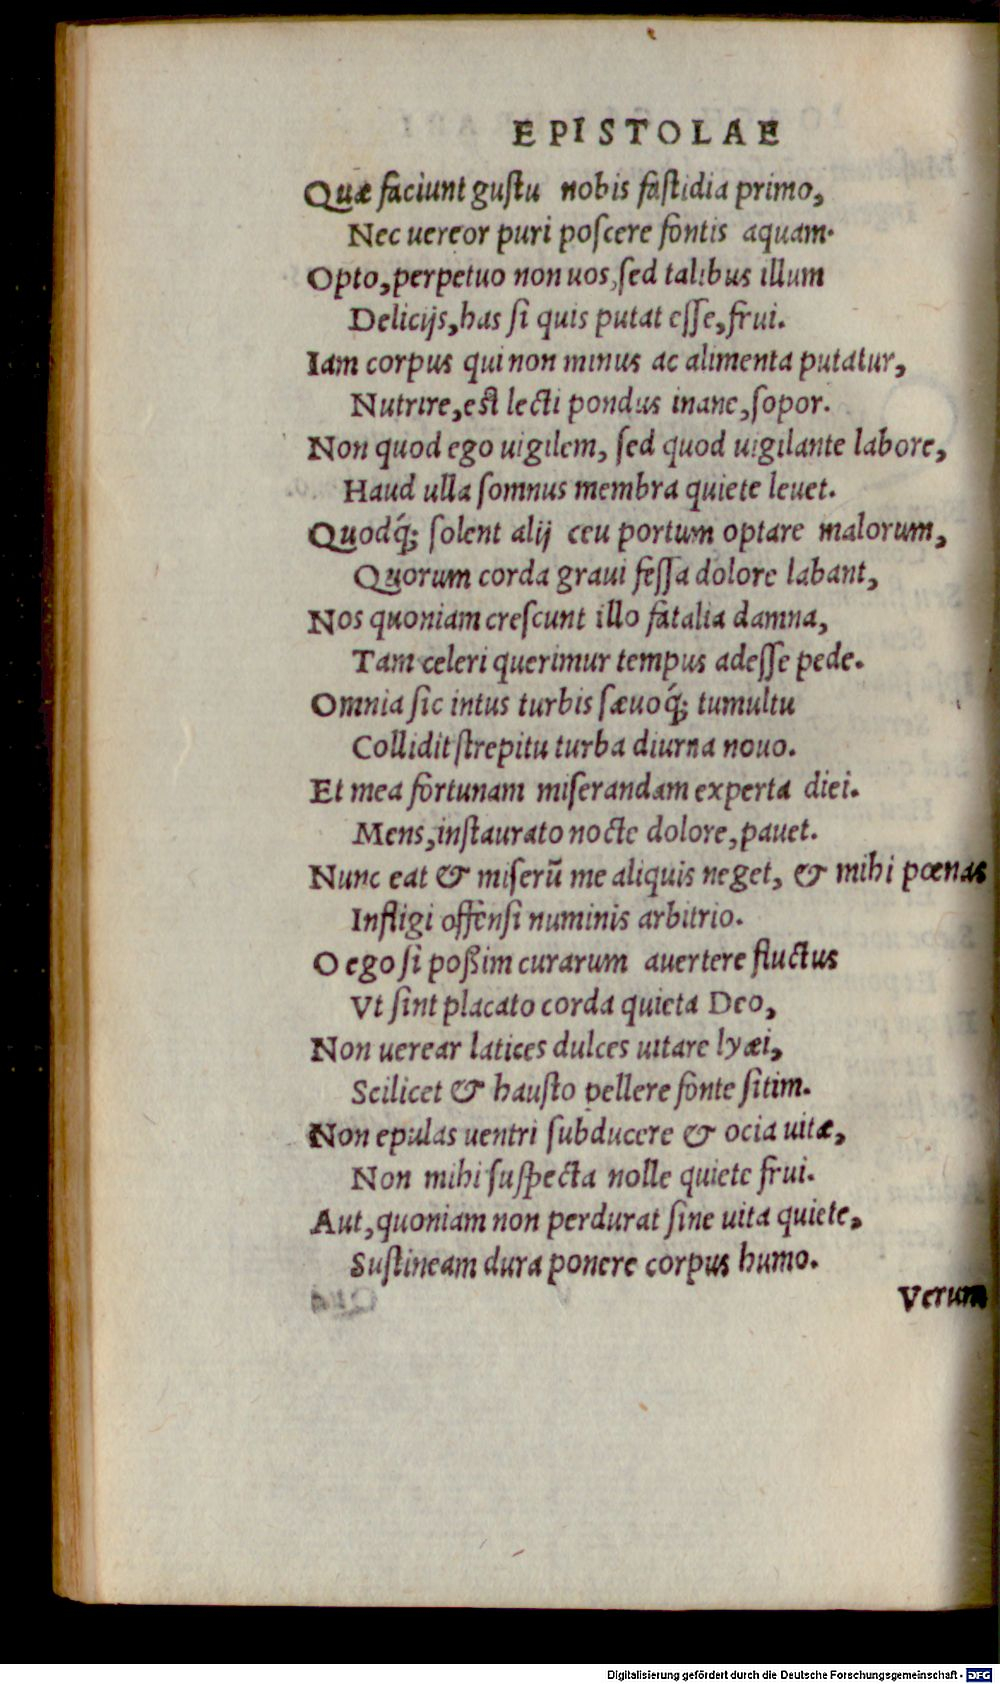 EPISTOLAE
Quæ faciunt gustu nobis fastidia primo,
Nec uereor puri poscere fontis aquam.
Opto, perpetuo non uos, sed talibus illum
Delicijs, has si quis putat esse, frui.
Iam corpus qui non minus ac alimenta putatur,
Nutrire, est lecti pondus inane, sopor.
Non quod ego uigilem, sed quod uigilante labore,
Haud ulla somnus membra quiete leuet.
Quodq́; solent alij ceu portum optare malorum,
Quorum corda graui fessa dolore labant,
Nos quoniam crescunt illo fatalia damna,
Tam celeri querimur tempus adesse pede.
Omnia sic intus turbis sæuoq́; tumultu
Collidit strepitu turba diurna nouo.
Et mea fortunam miserandam experta diei.
Mens, instaurato nocte dolore, pauet.
Nunc eat & miserũ me aliquis neget, & mihi pœnas
Infligi offensi numinis arbitrio.
O ego si poßim curarum auertere fluctus
Vt sint placato corda quieta Deo,
Non uerear latices dulces uitare lyæi,
Scilicet & hausto pellere fonte sitim.
Non epulas uentri subducere & ocia uitæ,
Non mihi suspecta nolle quiete frui.
Aut, quoniam non perdurat sine uita quiete,
Sustineam dura ponere corpus humo.
Verum
Digitalisierung gefördert durch die Deutsche Forschungsgemeinschaft - DFG